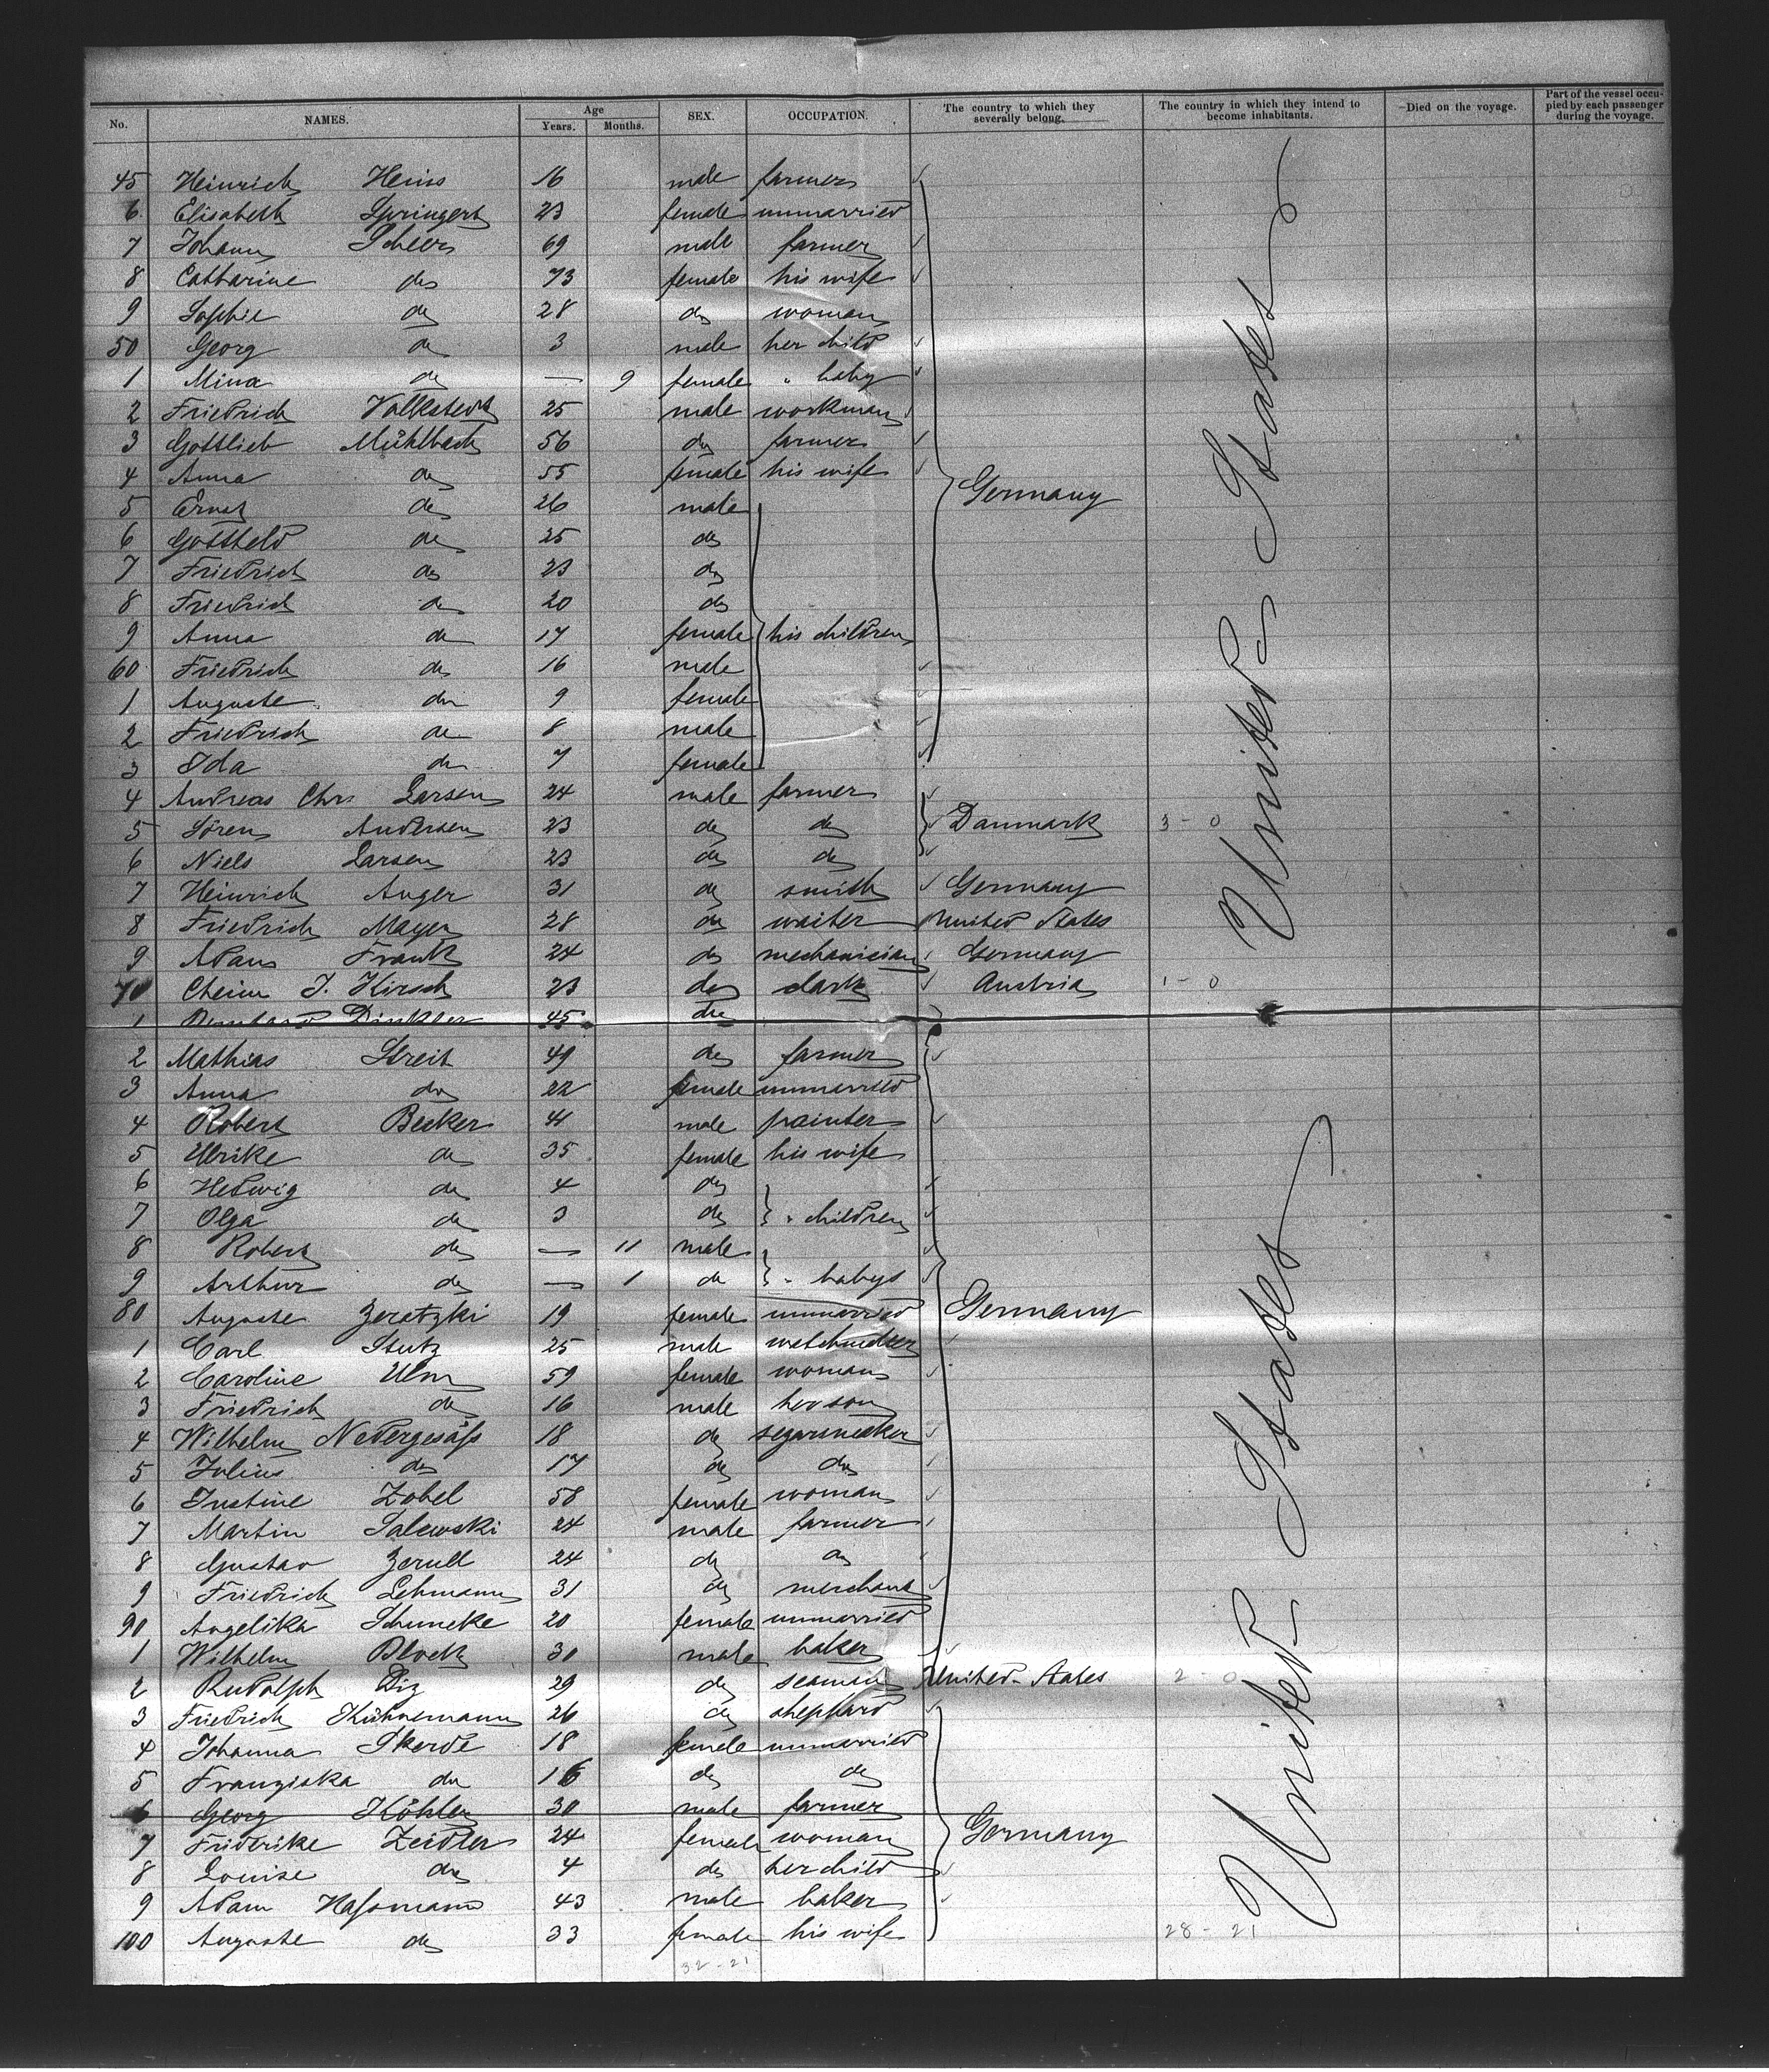 No. NAMES. Age Years. Months. SEX. OCCUPATION. The country to which they severally belong. The country in which they intend to become inhabitants. Died on the voyage. Part of the vessel occupied by each passenger during the voyage.
45 Heinrich Heins 16 male farmer
6 Elisabeth Springert 23 female unmarried
7 Johann Scheer 69 male farmer
8 Catharine do 73 female his wife
9 Sophie do 28 do woman
50 Georg do 3 male her child
1 Mina do — 9 female " baby
2 Friedrich Volkstedt 25 male workman
3 Gottlieb Mühlbach 56 do farmer
4 Anna do 55 female his wife Germany
5 Ernst do 26 male
6 Gottheld do 25 do
7 Friedrich do 23 do
8 Friedrich do 20 do
9 Anna do 17 female his children
60 Friedrich do 16 male
1 Auguste do 9 female
2 Friedrich do 8 male
3 Ida do 7 female
United States
4 Andreas Chr. Larsen 24 male farmer
5 Sören Andersen 23 do do Danmark 3 - 0
6 Niels Larsen 23 do do
7 Heinrich Anger 31 do smith Germany
8 Friedrich Mayer 28 do waiter United States
9 Adam Frank 24 do mechanician Germany
70 Cheim J. Hirsch 23 do clark Austria 1 - 0
1 Bernhard Dinkler 45 do
2 Mathias Streit 49 do farmer
3 Anna do 22 female unmarried
4 Robert Becker 41 male painter
5 Ulrike do 35 female his wife
6 Hedwig do 4 do
7 Olga do 3 do " children
8 Robert do — 11 male
9 Arthur do — 1 do " babys
80 Auguste Zeratzki 19 female unmarried Germany
1 Carl Stutz 25 male watchmaker
2 Caroline Ulm 59 female woman
3 Friedrich do 16 male her son
4 Wilhelm Nedergesäß 18 do segarmaker
5 Julius do 17 do do
6 Justine Zobel 58 female woman
7 Martin Salewski 24 male farmer
8 Gustav Zerull 24 do do
9 Friedrich Lehmann 31 do merchant
90 Angelika Schuneke 20 female unmarried
1 Wilhelm Block 30 male baker
2 Rudolph Diz 29 do seaman United States 2 - 0
United States
3 Friedrich Kühnemann 26 do sheppard
4 Johanna Skerde 18 female unmarried
5 Franziska do 16 do do
6 Georg Köhler 30 male farmer
7 Friderike Zeidler 24 female woman Germany
8 Louise do 4 do her child
9 Adam Haßmann 43 male baker
100 Auguste do 33 female his wife 28 - 21
32 - 21